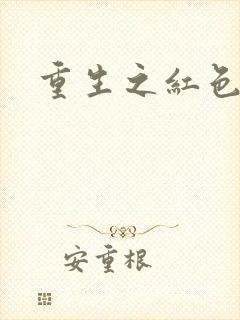 重生之紅色
安重根